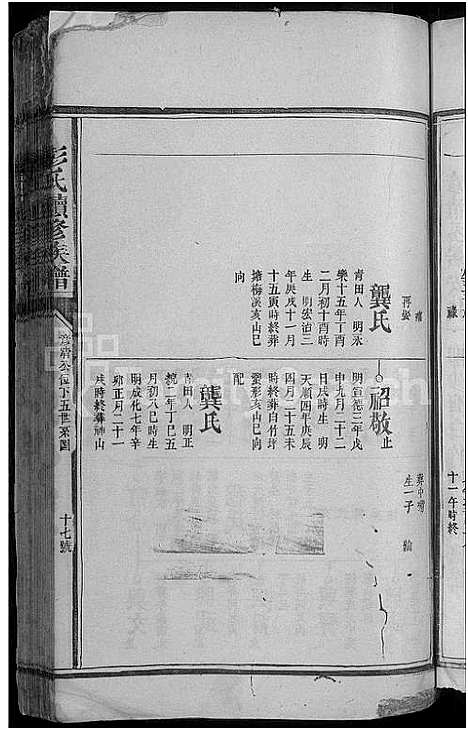 再娶
龔氏
青田人 明永
樂十五年丁酉
二月初十酉時
生 明宏治三
年庚戌十一月
十五寅時終葬
塘梅溪亥山巳
向
祒敬止
明宣德三年戊
申九月二十二
日戌時生 明
天順四年庚辰
四月二十五未
時終葬白竹坪
蟹形亥山巳向
配
龔氏
青田人 明正
統二年丁巳五
月初八巳時生
明成化七年辛
卯正月二十一
戌時終葬 山
生一子
十一午時終
彭氏續修族譜
公位下五世系圖
十七號